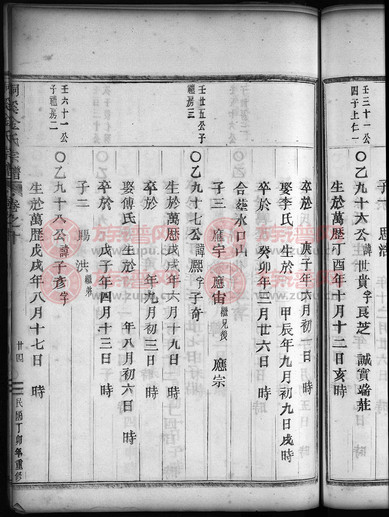 壬三十一公
四子上仁一
〇乙九十六公諱世貴字良芝 誠實端莊
生於萬歷丁酉年十月十二日亥時
卒於 庚子年六月初一日 時
娶李氏 生於 甲辰年九月初九日戌時
卒於 癸卯年三月廿六日 時
合塟水口山
子三 應宇 應宙 應宗
壬廿五公子
〇乙九十七公諱熙字子奇
生於萬歷戊戌年六月十九日 時
卒於 年九月初三日 時
娶傅氏 生於 年八月初六日 時
卒於 戊子年四月十三日 時
子二 賜 洪
壬六十一公
子禮房二
〇乙九十八公諱子彥字
生於萬歷戊戌年八月十七日 時
氏宗譜 卷之十
廿四
民國丁卯年重修
族譜网
www.zupu.cn